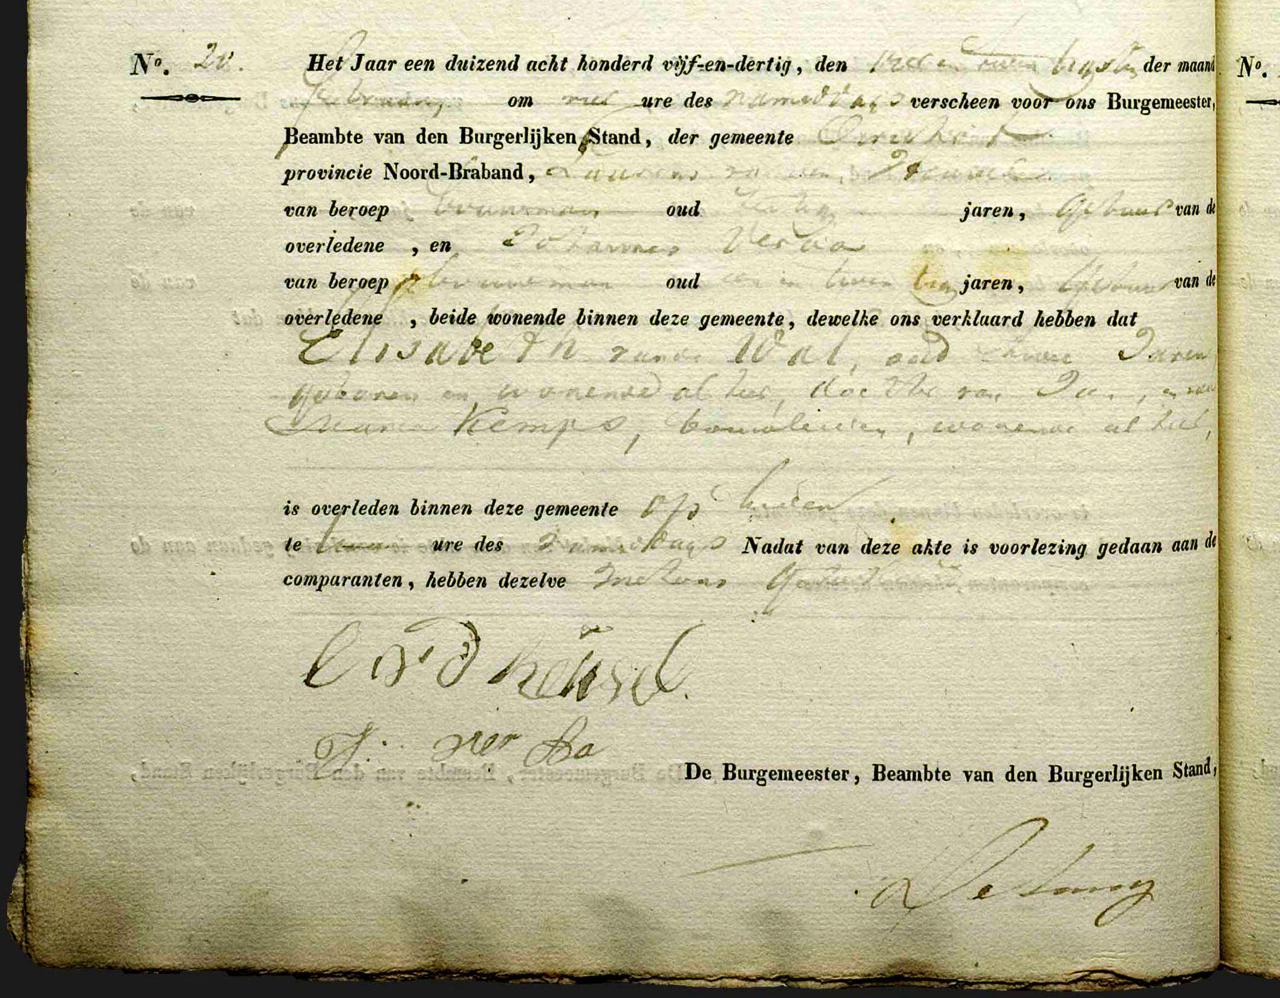 No. 20. Het Jaar een duizend acht honderd vijf-en-dertig, den twintigste der maand
Februarij om vier ure des namiddags verscheen voor ons Burgemeester,
Beambte van den Burgerlijken Stand, der gemeente
provincie Noord-Braband, Laurens van den Heuvel
van beroep bouwman oud jaren, gebuur van de
overledene , en Johannes Versa
van beroep bouwman oud en twintig jaren, gebuur van de
overledene , beide wonende binnen deze gemeente, dewelke ons verklaard hebben dat
Elisabeth van de Wal, oud twee Jaren
geboren en wonende al hier, dochter van Jan, en van
Maria Kemps, bouwlieden, wonende al hier,
is overleden binnen deze gemeente op heden
te ure des namiddags Nadat van deze akte is voorlezing gedaan aan de
comparanten, hebben dezelve met ons geteekend
L v d heuvel
J. ver sa
De Burgemeester, Beambte van den Burgerlijken Stand,
No.